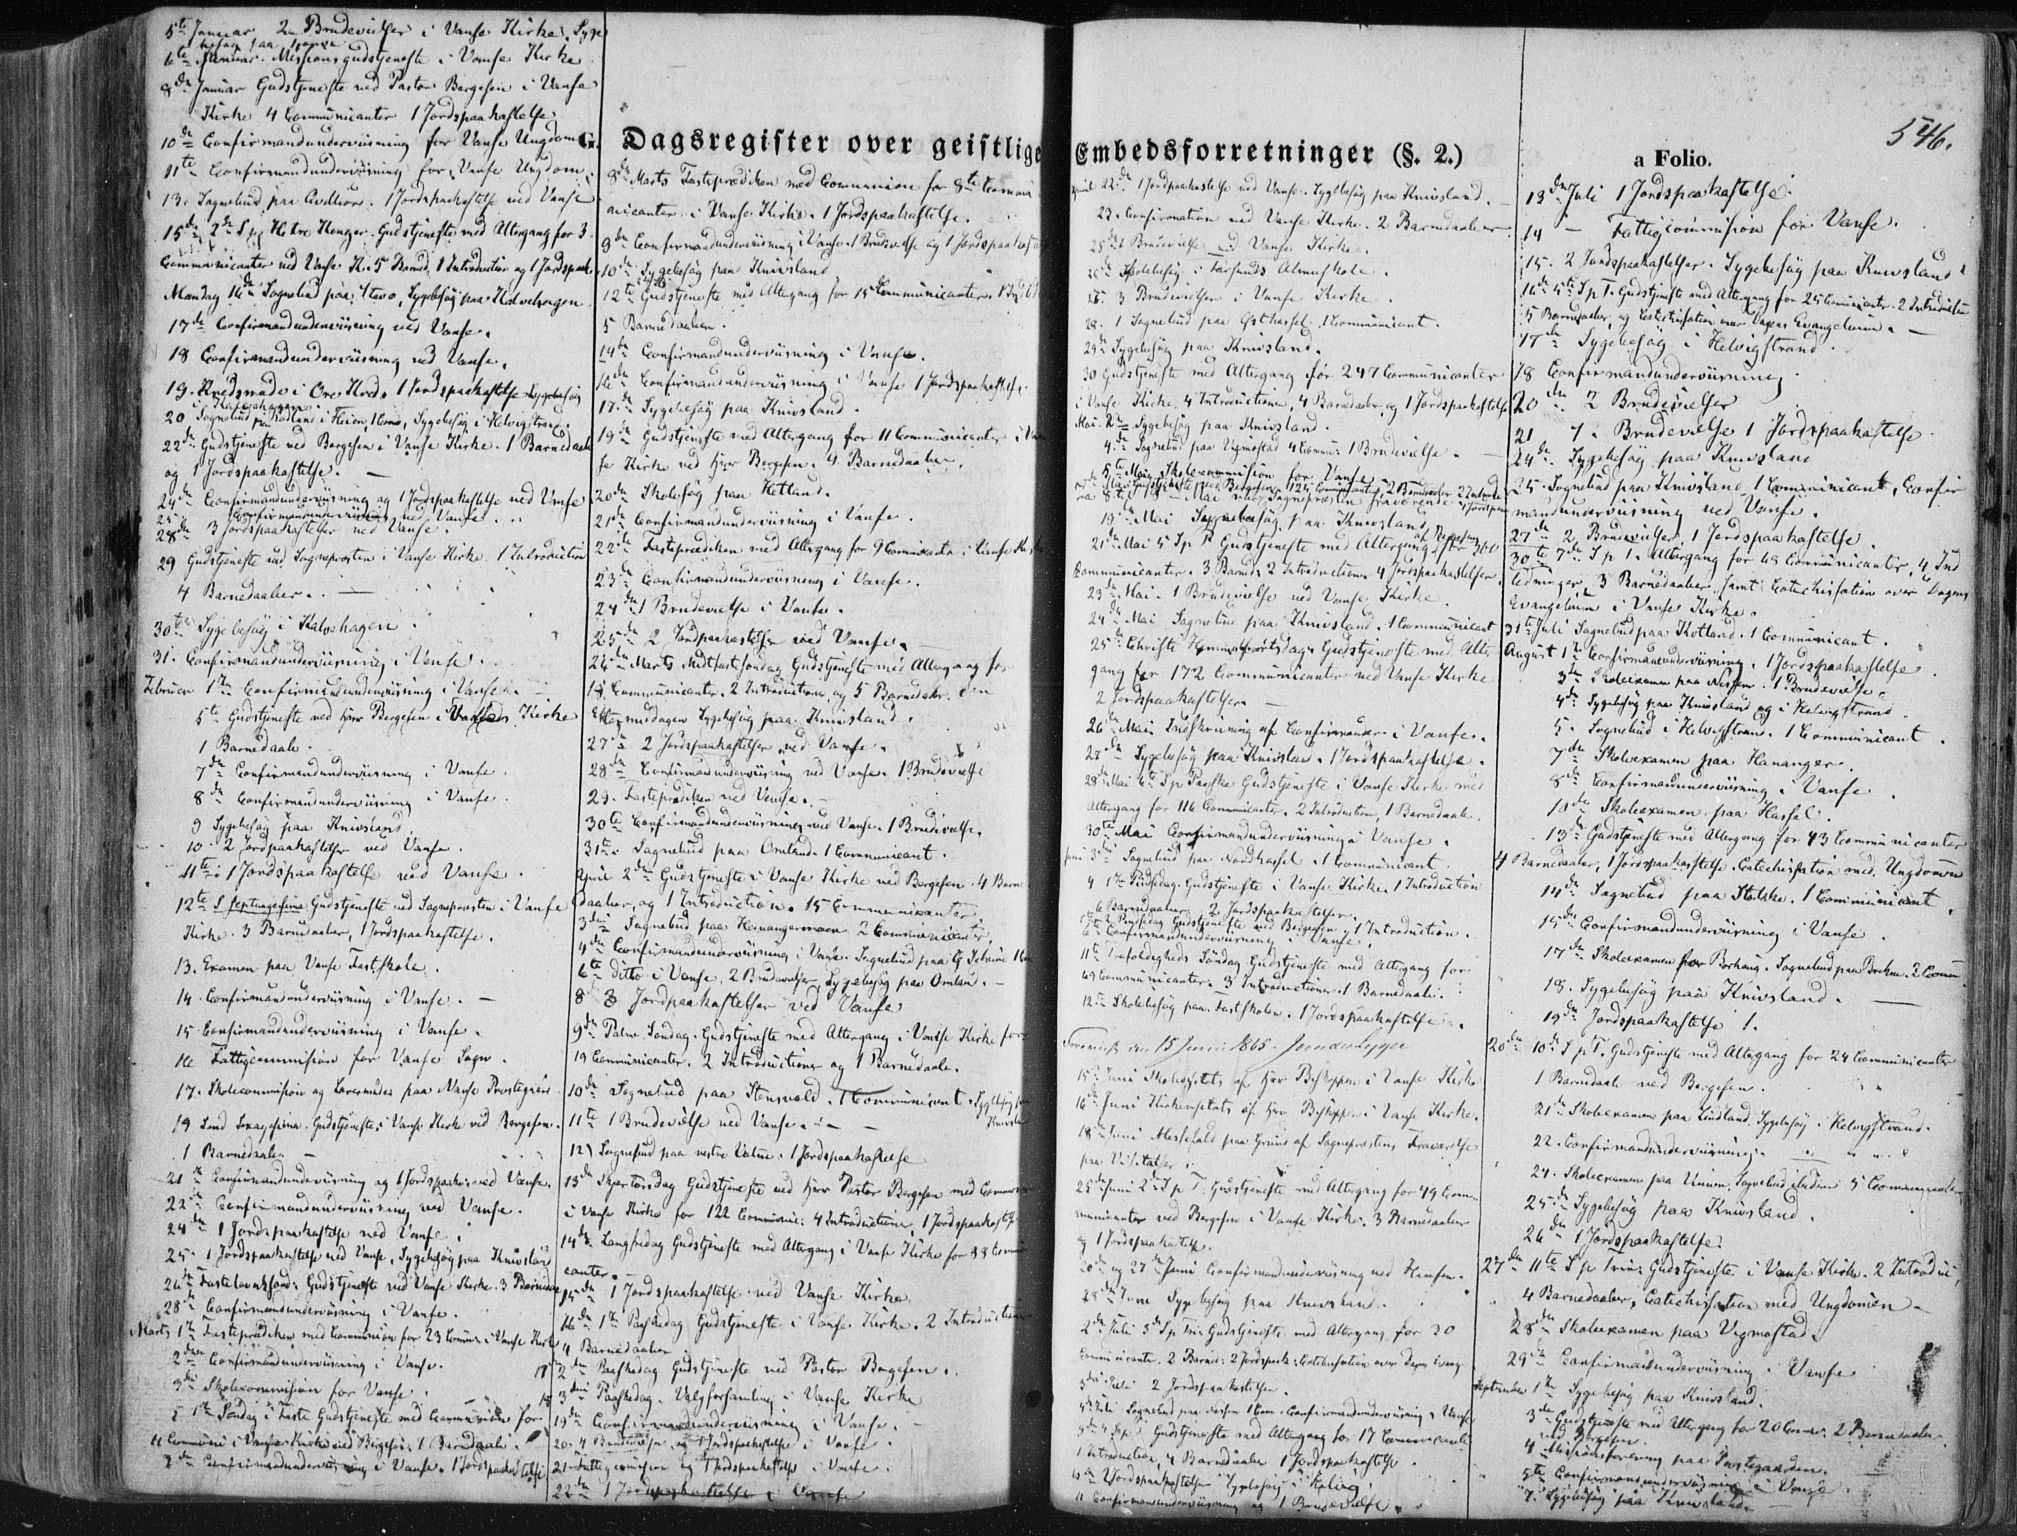 5te Januar 2 Brudevielser i Vanse Kirke. Syge
besøg paa
6te Januar. Missionsgudstjeneste i Vanse Kirke
8de Januar Gudstjeneste ved Pastor Bergesen i Vanse
Kirke 4 Communicanter 1 Jordspaakastelse
10de Confirmandunderviisning for Vanse Ungdom
11te Confirmandunderviisning for Vanse Ungdom
13. Sognebud paa 1 Jordspaakastelse ved Vanse
15de Gudstjeneste med Altergang for 3
Communicanter ved Vanse K. 5 Barned. 1 Introduction og 1 Jordspaak
Mandag 16de Sognebud paa Sygebesøg paa Kalveshagen
17de Confirmandunderviisning ved Vanse.
18 Confirmandunderviisning ved Vanse.
19. 1 Jordspaakastelse Sygebesøg
20 Sognebud Sygebesøg i Helvigstrand.
22de Gudstjeneste ved Bergesen i Vanse Kirke. 1 Barnedaab
og 1 Jordspaakastelse.
24de Confirmandunderviisning og 1 Jordspaakastelse ved Vanse
25de Confirmandunderviisning ved Vanse.
28de 3 Jordspaakastelser ved Vanse.
29 Gudstjeneste ved Sognepresten i Vanse Kirke. 1 Introduction
4 Barnedaaber.
30te Sygebesøg i Kalveshagen.
31. Confirmandunderviisning i Vanse.
Februar 1ste Confirmandunderviisning i Vanse.
5te Gudstjeneste ved Herr Bergesen i Vanse Kirke
1 Barnedaab.
7de Confirmandunderviisning i Vanse.
8de Confirmandunderviisning i Vanse.
9 Sygebesøg paa Knivsland
10. 2 Jordpaakastelser ved Vanse.
11te 1 Jordspaakastelse ved Vanse.
12te S. Septuagesima Gudstjeneste ved Sognepresten i Vanse
Kirke. 3 Barnedaaber, 1 Jordspaakastelse.
13. Examen paa Vanse Fastskole.
14. Confirmandunderviisning i Vanse.
15 Confirmandunderviisning i Vanse.
16 Fattigcommission for Vanse Sogn.
17. Skolecommission og Lærermøde paa Vanse Prestegaard
19 Sønd Sexagesima. Gudstjeneste i Vanse Kirke ved Bergesen.
1 Barnedaab.
21de Confirmandunderviisning og 1 Jordspaak. ved Vanse.
22de Confirmandunderviisning ved Vanse.
24de 1 Jordspaakastelse ved Vanse.
25. 1 Jordspaakastelse ved Vanse. Sygebesøg paa Knivsland
26de Fastelavnssønd: Gudstjeneste ved Vanse Kirke. 3 Barned
28de Confirmandunderviisning i Vanse.
Marts 1ste Fasteprædiken med Communion for 23 Comm: i Vanse Kirke
2den Confirmandunderviisning i Vanse.
3die Skolecommission for Vanse.
5 1ste Søndag i Faste Gudstjeneste med Communion for
11 Communic i Vanse Kirke ved Bergesen. 1 Barnedaab.
7de Confirmandunderviisning i Vanse. 1 Jordspaakastelse
G. Dagsregister over geistlige
8de Marts Fasteprædiken med Communion for 8te Commu
nicanter i Vanse Kirke. 1 Jordspaakastelse.
9de Confirmandunderviisning i Vanse. 1 Brudevielse og 1 Jordspaakast
10de Sygebesøg paa Knivsland
12te Gudstjeneste med Altergang for 15 Communicanter.
5 Barnedaaber.
14de Confirmandunderviisning i Vanse.
16de Confirmandunderviisning i Vanse 1 Jordspaakastelse.
17de Sygebesøg paa Knivsland.
19de Gudstjeneste med Altergang for 11 Communicanter i Van
se Kirke ved Herr Bergesen. 4 Barnedaaber.
20de Skolebesøg paa Ketland.
21de Confirmandunderviisning i Vanse.
22de Fasteprædiken med Altergang for 9 Communicanter i Vanse Kirke
23de Confirmandunderviisning i Vanse.
24de 1 Brudevielse i Vanse.
25de 2 Jordpaakastelser ved Vanse.
26de Marts Midtfastesøndag Gudstjeneste med Altergang for
18 Communicanter. 2 Introductioner og 5 Barnedaaber. den
Eftermiddagen Sygebesøg paa Knivsland.
27de 2 Jordspaakastelser ved Vanse.
28de Confirmandunderviisning ved Vanse. 1 Brudevielse
29. Fasteprædiken ved Vanse.
30te Confirmandunderviisning ved Vanse. 1 Brudevielse.
31te Sognebud paa Omland. 1 Communicant.
April 2den Gudstjeneste i Vanse Kirke ved Bergesen. 4 Barne
daaber, og 1 Introduction. 15 Communicanter.
3die Sognebud paa Hanangermoen 2 Communicanter.
4de Confirmandunderviisning i Vanse. Sognebud paa
6te Ditto i Vanse, 2 Brudevielser, Sygebesøg paa Omland.
8de 3 Jordpaakastelser ved Vanse
9de Palme Søndag. Gudstjeneste med Altergang i Vanse Kirke for
19 Communicanter. 2 Introductioner og 1 Barnedaab.
10de Sognebud paa Stensvold. 1 Communicant. Sygebesøg paa
Knivsla
11te 1 Brudevielse ved Vanse.
12) Sognebud paa vestre Vatne. 1 Jordspaakastelse
13de Skjertorsdag Gudstjeneste ved Herr Pastor Bergesen med Communion
i Vanse Kirke for 122 Communic: 4 Introductioner, 1 Jordspaakast
14de Langfredag Gudstjeneste med Altergang i Vanse Kirke for 88 Commu
canter.
15de 1 Jordspaakastelse ved Vanse Kirke
16de 1ste Paaskedag Gudstjeneste i Vanse Kirke. 2 Introductioner
4 Barnedaaber
17de 2den Paaskedag Gudstjeneste ved Pastor Bergesen.
18 3die Paaskedag. Valgforsamling i Vanse Kirke
19de Confirmandunderviisning i Vanse.
20. 4 Brudevielser og 1 Jordspaakastelse i Vanse.
21. Fattigcommission og 1 Jordspaakastelse i Vanse.
22de 1 Jordspaakastelse i Vanse
Embedsforretninger (§. 2.)
April 22de 1 Jordpaakastelse ved Vanse. Sygebesøg paa Knivsland.
23. Confirmation ved Vanse Kirke. 2 Barnedaaber
25de 1 Brudevielse ved Vanse Kirke.
26de Skolebesøg i Farsunds Almueskole.
27. 3 Brudevielser i Vanse Kirke.
28. 1 Sognebud paa Østhassel. 1 Communicant.
29de Sygebesøg paa Knivsland.
30 Gudstjeneste med Altergang for 247 Communicanter
i Vanse Kirke, 4 Introductioner, 4 Barnedaaber, og 1 Jordspaakastelse
Mai. 2den Sygebesøg paa Knivsland.
4de Sognebud paa Vigmostad 4 Commu: 1 Brudevielse.
5te Mai Skolecommission for Vanse
7de Mai Gudstjeneste ved Bergesen, 125 Communicanter, 2 Barnedaaber 2 Introd
Fra 8de Mai var Sognepresten fraværende
19de Mai Sygebesøg paa Knivsland
21de Mai 5 S p P Gudstjeneste med Altergang for 300
Communicanter. 3 Barned: 2 Introductioner 4 Jordspaakastelser.
23de Mai. 1 Brudevielse ved Vanse Kirke.
24de Mai Sognebud paa Knivsland. 1 Communicant
25de Christi Himmelfartsdag. Gudstjeneste med Alter
gang for 172 Communicanter ved Vanse Kirke
2 Jordspaakastelser.
26de Mai Indskrivning af Confirmander i Vanse.
27de Sygebesøg paa Knivsland. 1 Jordspaakastelse.
28de Mai 6te S p Paaske Gudstjeneste i Vanse Kirke med
Altergang for 116 Communicanter. 2 Introductioner, 1 Barnedaab.
30te Mai Confirmandunderviisning i Vanse.
Juni 3die Sognebud paa Nordhassel. 1 Communicant.
4 1ste Pindsedag. Gudstjeneste i Vanse Kirke. 1 Introduction
6 Barnedaaber. 2 Jordspaakastelser.
5te 2 Pindsedag Gudstjeneste ved Bergesen, 1 Introduction.
6te Confirmandunderviisning i Vanse.
11te Trefoldigheds Søndag Gudstjeneste med Altergang for
69 Communicanter. 3 Introductioner. 1 Barnedaab.
12te Skolebesøg paa Fastskolen. 1 Jordspaakastelse.
Foreviist den 15 Juni 1865.
15de Juni Skolevisitats af Herr Biskoppen i Vanse Kirke
16de Juni Kirkevisitats af Herr Biskoppen i Vanse Kirke.
18de Juni Messefald paa Grund af Sognepræstens Fraværelse
paa Visitatser.
25de Juni 2den S p T: Gudstjeneste med Altergang for 49 Commu
municanter ved Bergesen i Vanse Kirke. 3 Barnedaaber
og 1 Jordspaakastelse.
20de og 27de Juni Confirmandunderviisning ved
28de Juni Sygebesøg paa Knivsland.
2den Juli 3die S p Tri: Gudstjeneste med Altergang for 30
Communicanter. 2 Barned: 2 Jordspaak: Catechisation over Dagens Evang.
3die Juli 2 Jordspaakastelser.
4de Juli Sognebud paa Confirmandunderviisning i Vanse
Gudstjeneste med Altergang for 17 Communicanter
1 Introduction, 4 Barnedaaber 1 Jordspaakastelse
2 Jordspaakastelser Sygebesøg i Helvig
11 Confirmandunderviisning og 1 Brudevielse.
546.
a Folio.
13de Juli 1 Jordspaakastelse.
14 - Fattigcommission for Vanse.
15. 2 Jordspaakastelser. Sygebesøg paa Knivsland
16de 5te S p T. Gudstjeneste med Altergang for 25 Communicanter. 2 Introduction
5 Barnedaaber, og Catechisation over Dagens Evangelium.
17de Sygebesøg i Helvigstrand.
18 Confirmandunderviisning
20de 2 Brudevielser
21 1 Brudevielse 1 Jordspaakastelse
24de Sygebesøg paa Knivsland
25. Sognebud paa Knivsland 1 Communicant, Confir
mandunderviisning ved Vanse.
27de 2 Brudevielser, 1 Jordspaakastelse.
30te 7de S p T. Altergang for 48 Communicanter, 4 Ind
ledninger, 3 Barnedaaber, samt Catechisation over Dagens
Evangelium i Vanse Kirke.
31te Juli Sognebud paa Kotland. 1 Communicant.
August 1ste Confirmandunderviisning. 1 Jordspaakastelse
3de Skoleexamen paa 1 Brudevielse.
4de Sygebesøg paa Knivsland og i Helvigstrand
5. Sognebud i Helvigstrand. 1 Communicant.
7de Skoleexamen paa Hananger.
8de Confirmandunderviisning i Vanse.
11te Skoleexamen paa Hassel.
13de Gudstjeneste med Altergang for 43 Communicanter
4 Barnedaaber, 1 Jordspaakastelse. Catechisation med Ungdommen
14de Sognebud paa 1 Communicant.
15de Confirmandunderviisning i Vanse.
17de Skoleexamen paa Borhaug. Sognebud paa Brekne. 2 Commu
18. Sygebesøg paa Knivsland.
19de Jordspaakastelse 1.
20de 10de S p T. Gudstjeneste med Altergang for 24 Communicanter
1 Barnedaab ved Bergesen.
21de Skoleexamen paa Lindland. Sygebesøg i Helvigstrand.
22. Confirmandunderviisning.
24. Skoleexamen paa
25de Sygebesøg paa Knivsland.
26de 1 Jordspaakastelse.
27de 11te S p Trin: Gudstjeneste i Vanse Kirke. 2 Introduc
4 Barnedaaber, Catechisation med Ungdomen
28de Skoleexamen paa Vigmostad.
29de Confirmandunderviisning i Vanse
September 1ste Sygebesøg paa Knivsland.
3de Gudstjeneste med Altergang for 20 Comm: 2 Barnedaaber
ved Bergesen.
4 Missionsforening paa Prestegaarden.
5te Confirmandunderviisning i Vanse
7. Sygebesøg paa Knivsland